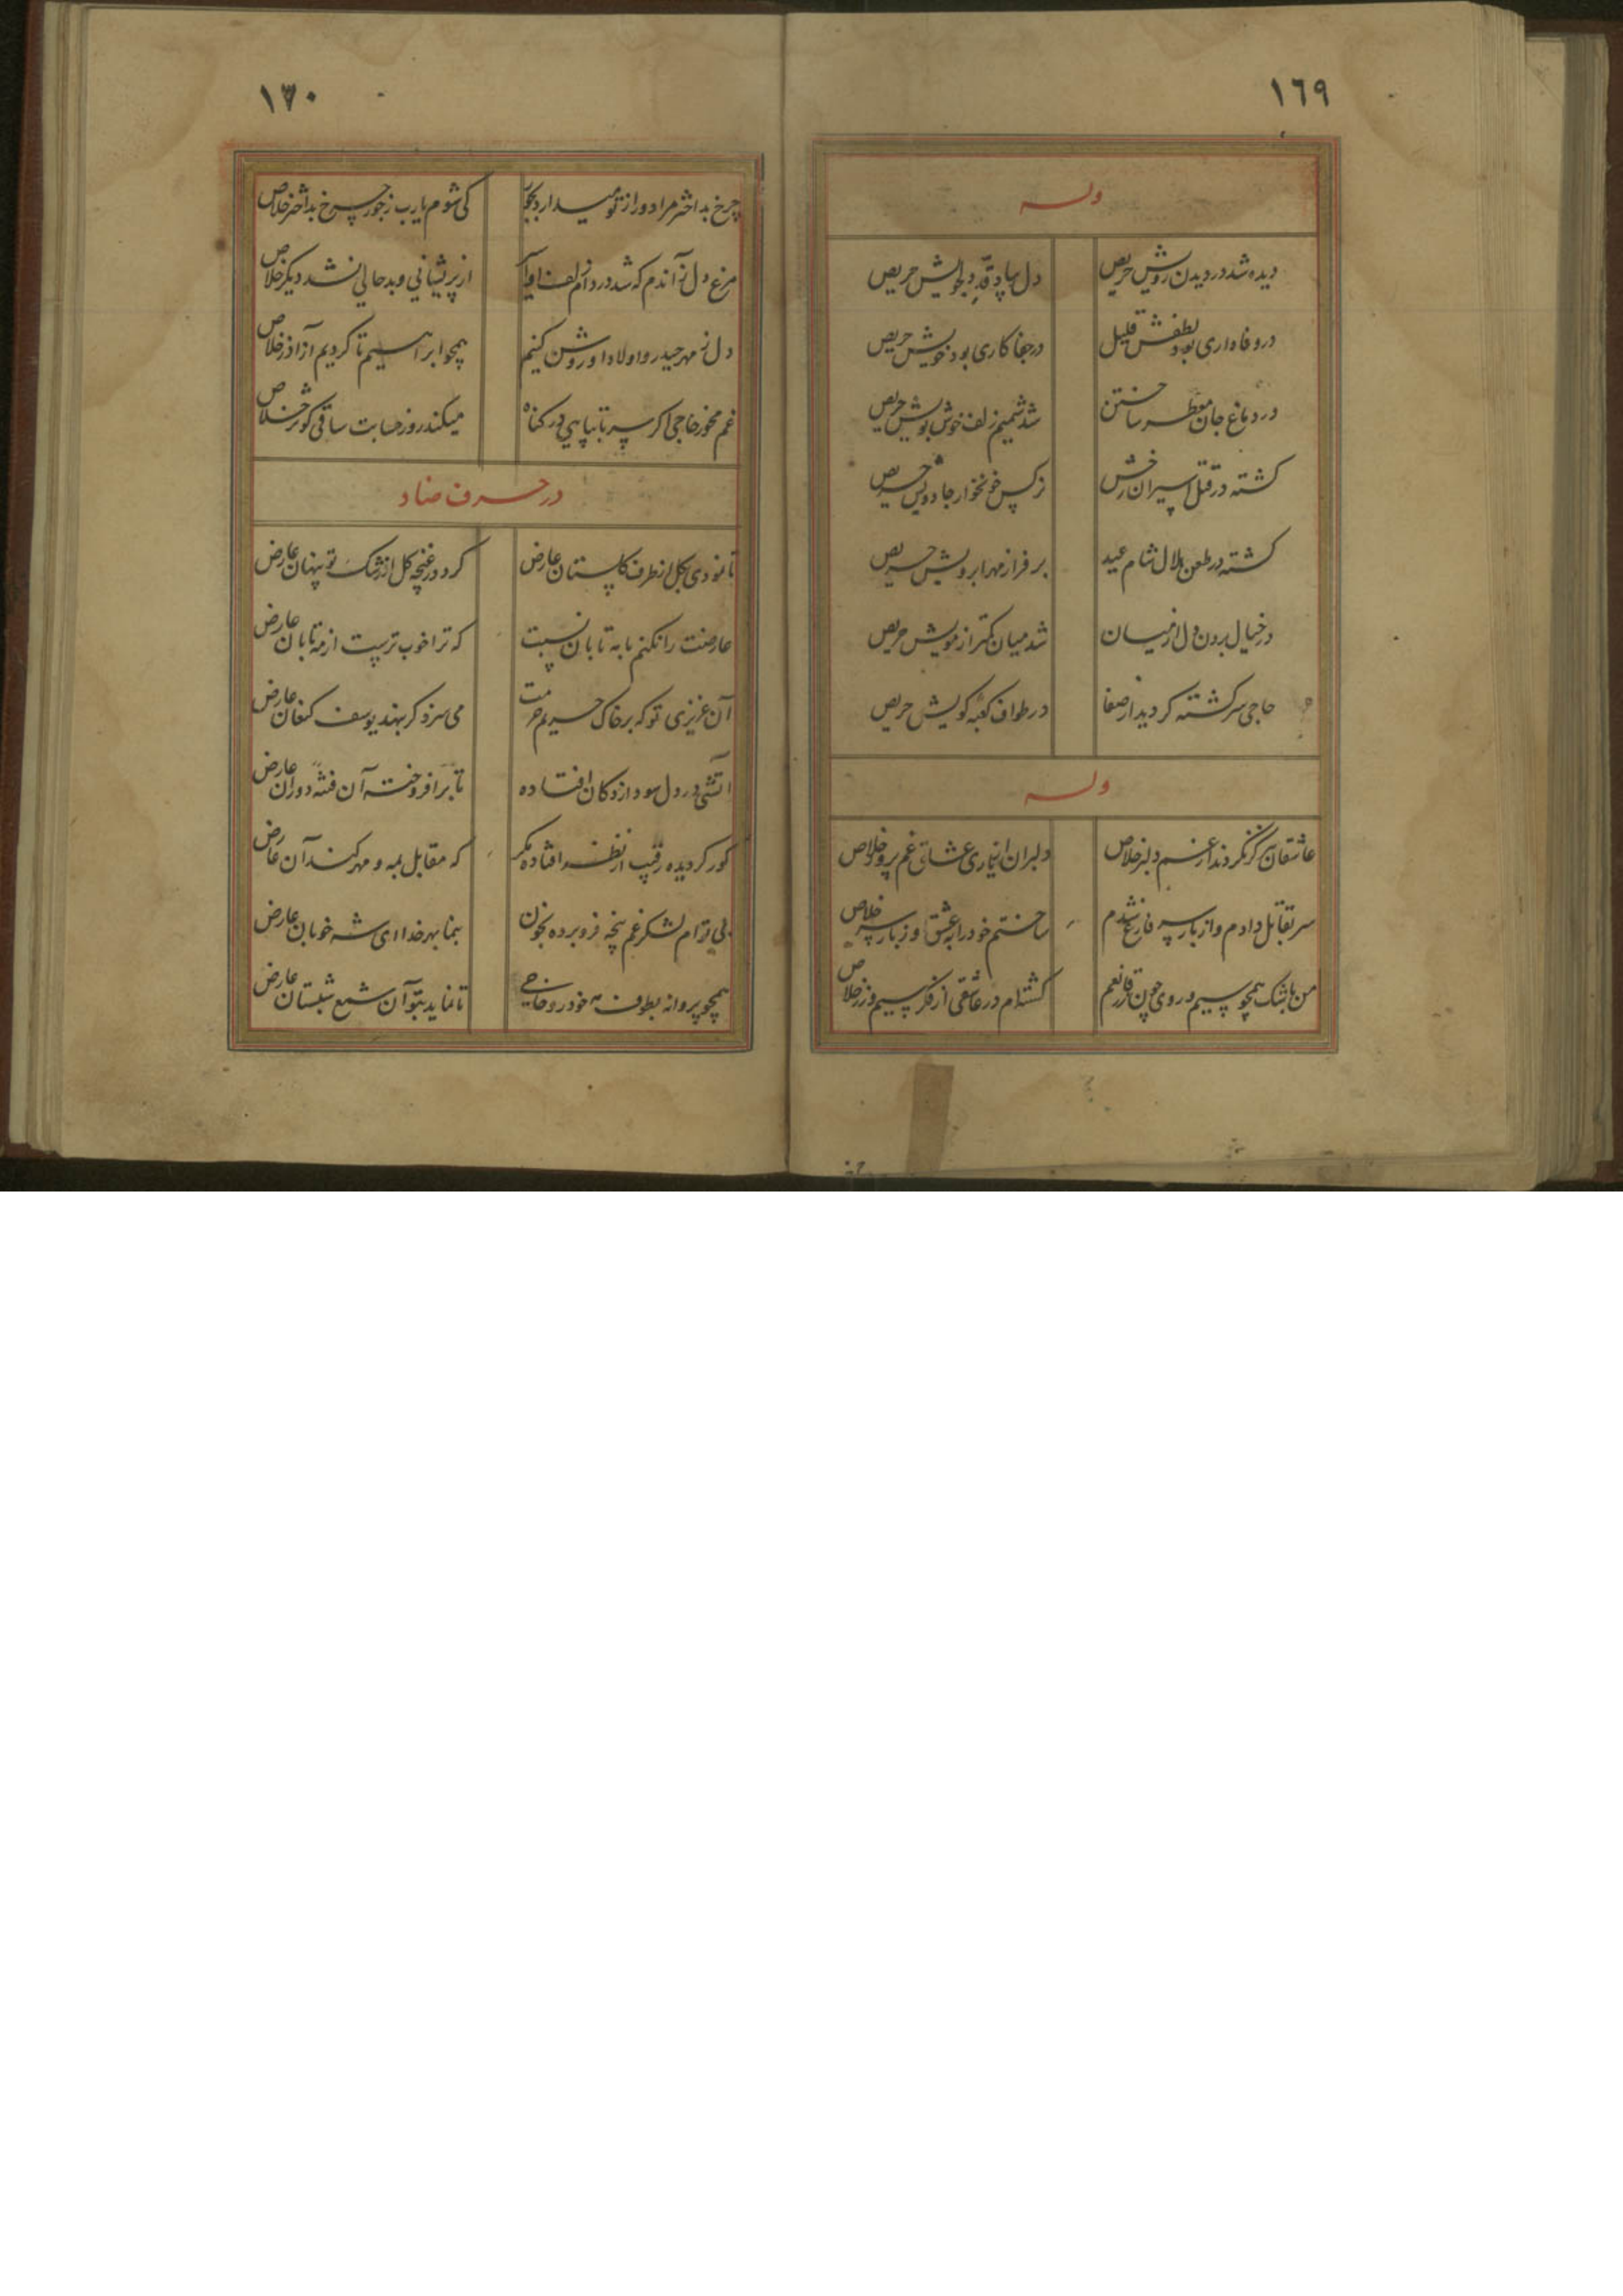 ١٦٩
وله
دیده شد در دیدن رویش حریص دل بیاد قد دلجویش حریص
در وفاداری بود لطفش قلیل در جفاکاری بود خویش حریص
در دماغ جان معطر ساختن شد شمیم زلف خوش بویش حریص
کشته در قتل اسیران رخش نرکس خونخوار جادویش حریص
کشته در طعن هلال شام عید بر فراز مهر ابرویش حریص
در خیال بردن دل از میان شد میان کمتر از مویش حریص
حاجی سرکشته کردید از صفا در طواف کعبه کویش حریص
وله
عاشقان هرکز نکردند از غم دلبر خلاص دلبران از یاری عشاق غم پرور خلاص
سر بقاتل دادم و از بار سر فارغ شدم ساختم خود را به عشق او ز بار سر خلاص
من باشک همچو سیم و روی چون زر قانعم کشته‌ام در عاشقی از فکر سیم و زر خلاص
١٧٠
چرخ بد اختر مرا دور از تو میدارد بجور کی شوم یارب ز جور چرخ بد اختر خلاص
مرغ دل ز آندم که شد در دام زلف او از پریشانی و بد حالی نشد دیکر خلاص
دل ز مهر حیدر و اولاد او روشن کنیم همچو ابراهیم تا کردیم از آذر خلاص
غم مخور حاجی اکر سر تا بپایی در کناه میکند روز حسابت ساقی کوثر خلاص
در حرف ضاد
تا نمودی بکل از طرف کلستان عارض کرد در غنچه کل از رشک تو پنهان عارض
عارضت را نکنم با مه تابان نسبت که ترا خوب ترست از مه تابان عارض
آن عزیزی تو که بر خاک حریم حرمت می سزد کر بنهد یوسف کنعان عارض
آتشی در دل سودازدکان افتاده تا برافروخته آن فتنه دوران عارض
کور کردیده رقیب از نظر افتاده مکر که مقابل بمه و مهر کند آن عارض
بی تو ام لشکر غم پنجه فرو برده بخون بنما بهر خدا ای شه خوبان عارض
همچو پروانه بطوف خود رو حاجی تا نماید بتو آن شمع شبستان عارض